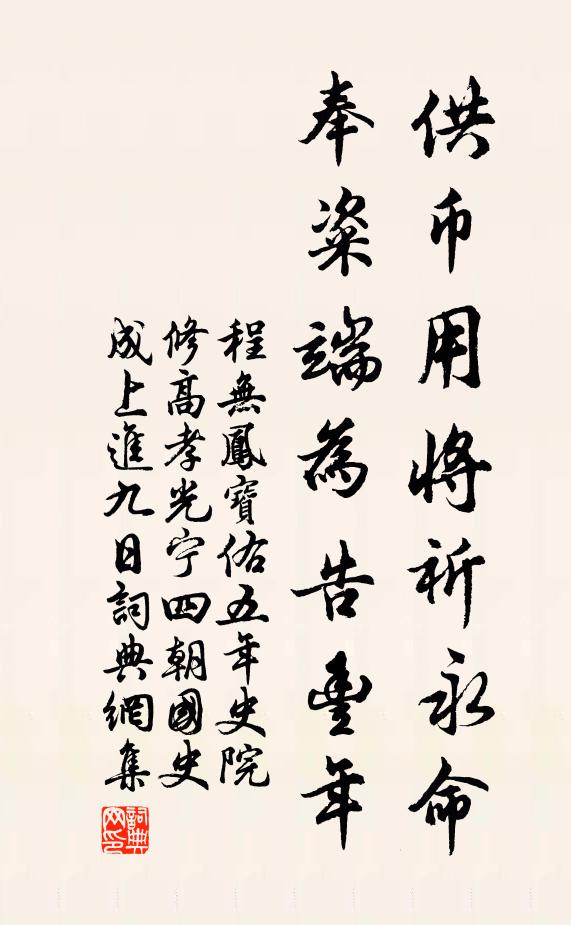 供币用將祈永命
奉粢端為告豐年
程無鳳寶佑五年史院
修高孝光宁四朝國史
成上進九日詞典網集
詞典網印